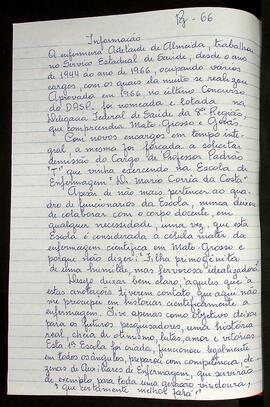 Pg - 66
Informação
A enfermeira Adelaide de Almeida, trabalhou
no Serviço Estadual de Saúde, desde o ano
de 1944 ao ano de 1966, ocupando vários
cargos, com os quais ela muito se realizou.
Aprovada em 1966, no último Concurso
do DASP. foi nomeada e lotada na
Delegacia Federal de Saúde da 8ª Região,
que compreendia Mato-Grosso e Goiás.
Com novos encargos em tempo inte-
gral a mesma foi forçada a solicitar
demissão do Cargo de Professor Padrão
"T" que vinha exercendo na Escola de
Enfermagem "Dr Mario Corrêa da Costa".
Apezar de não mais pertencer ao qua-
dro de funcionarios da Escola, nunca deixou
de colaborar com o corpo docente, em
qualquer necessidade, uma vez, que esta
Escola é considerada a célula mater da
enfermagem cientifica em Mato-Grosso e
porque não dizer: "Filha primogênita
de uma humilde, mas fervorosa idealizadora".
Desejo deixar bem claro, aqueles que a
estas anotações tiverem contato, que aqui não
me preocupe em histórias cientificamente a
enfermagem. Tive apenas como objetivo deixar
para os futuros pesquizadores, uma história
real cheia de otimismo, lutas, amor e vitórias
Esta 1ª Escola foi criada, funcionou legalmente
em todos os ângulos, preparou com competência, de-
zenas de Auxiliares de Enfermagem, que servirão
de exemplo, para toda uma geração vindoura,
que certamente melhor fará".